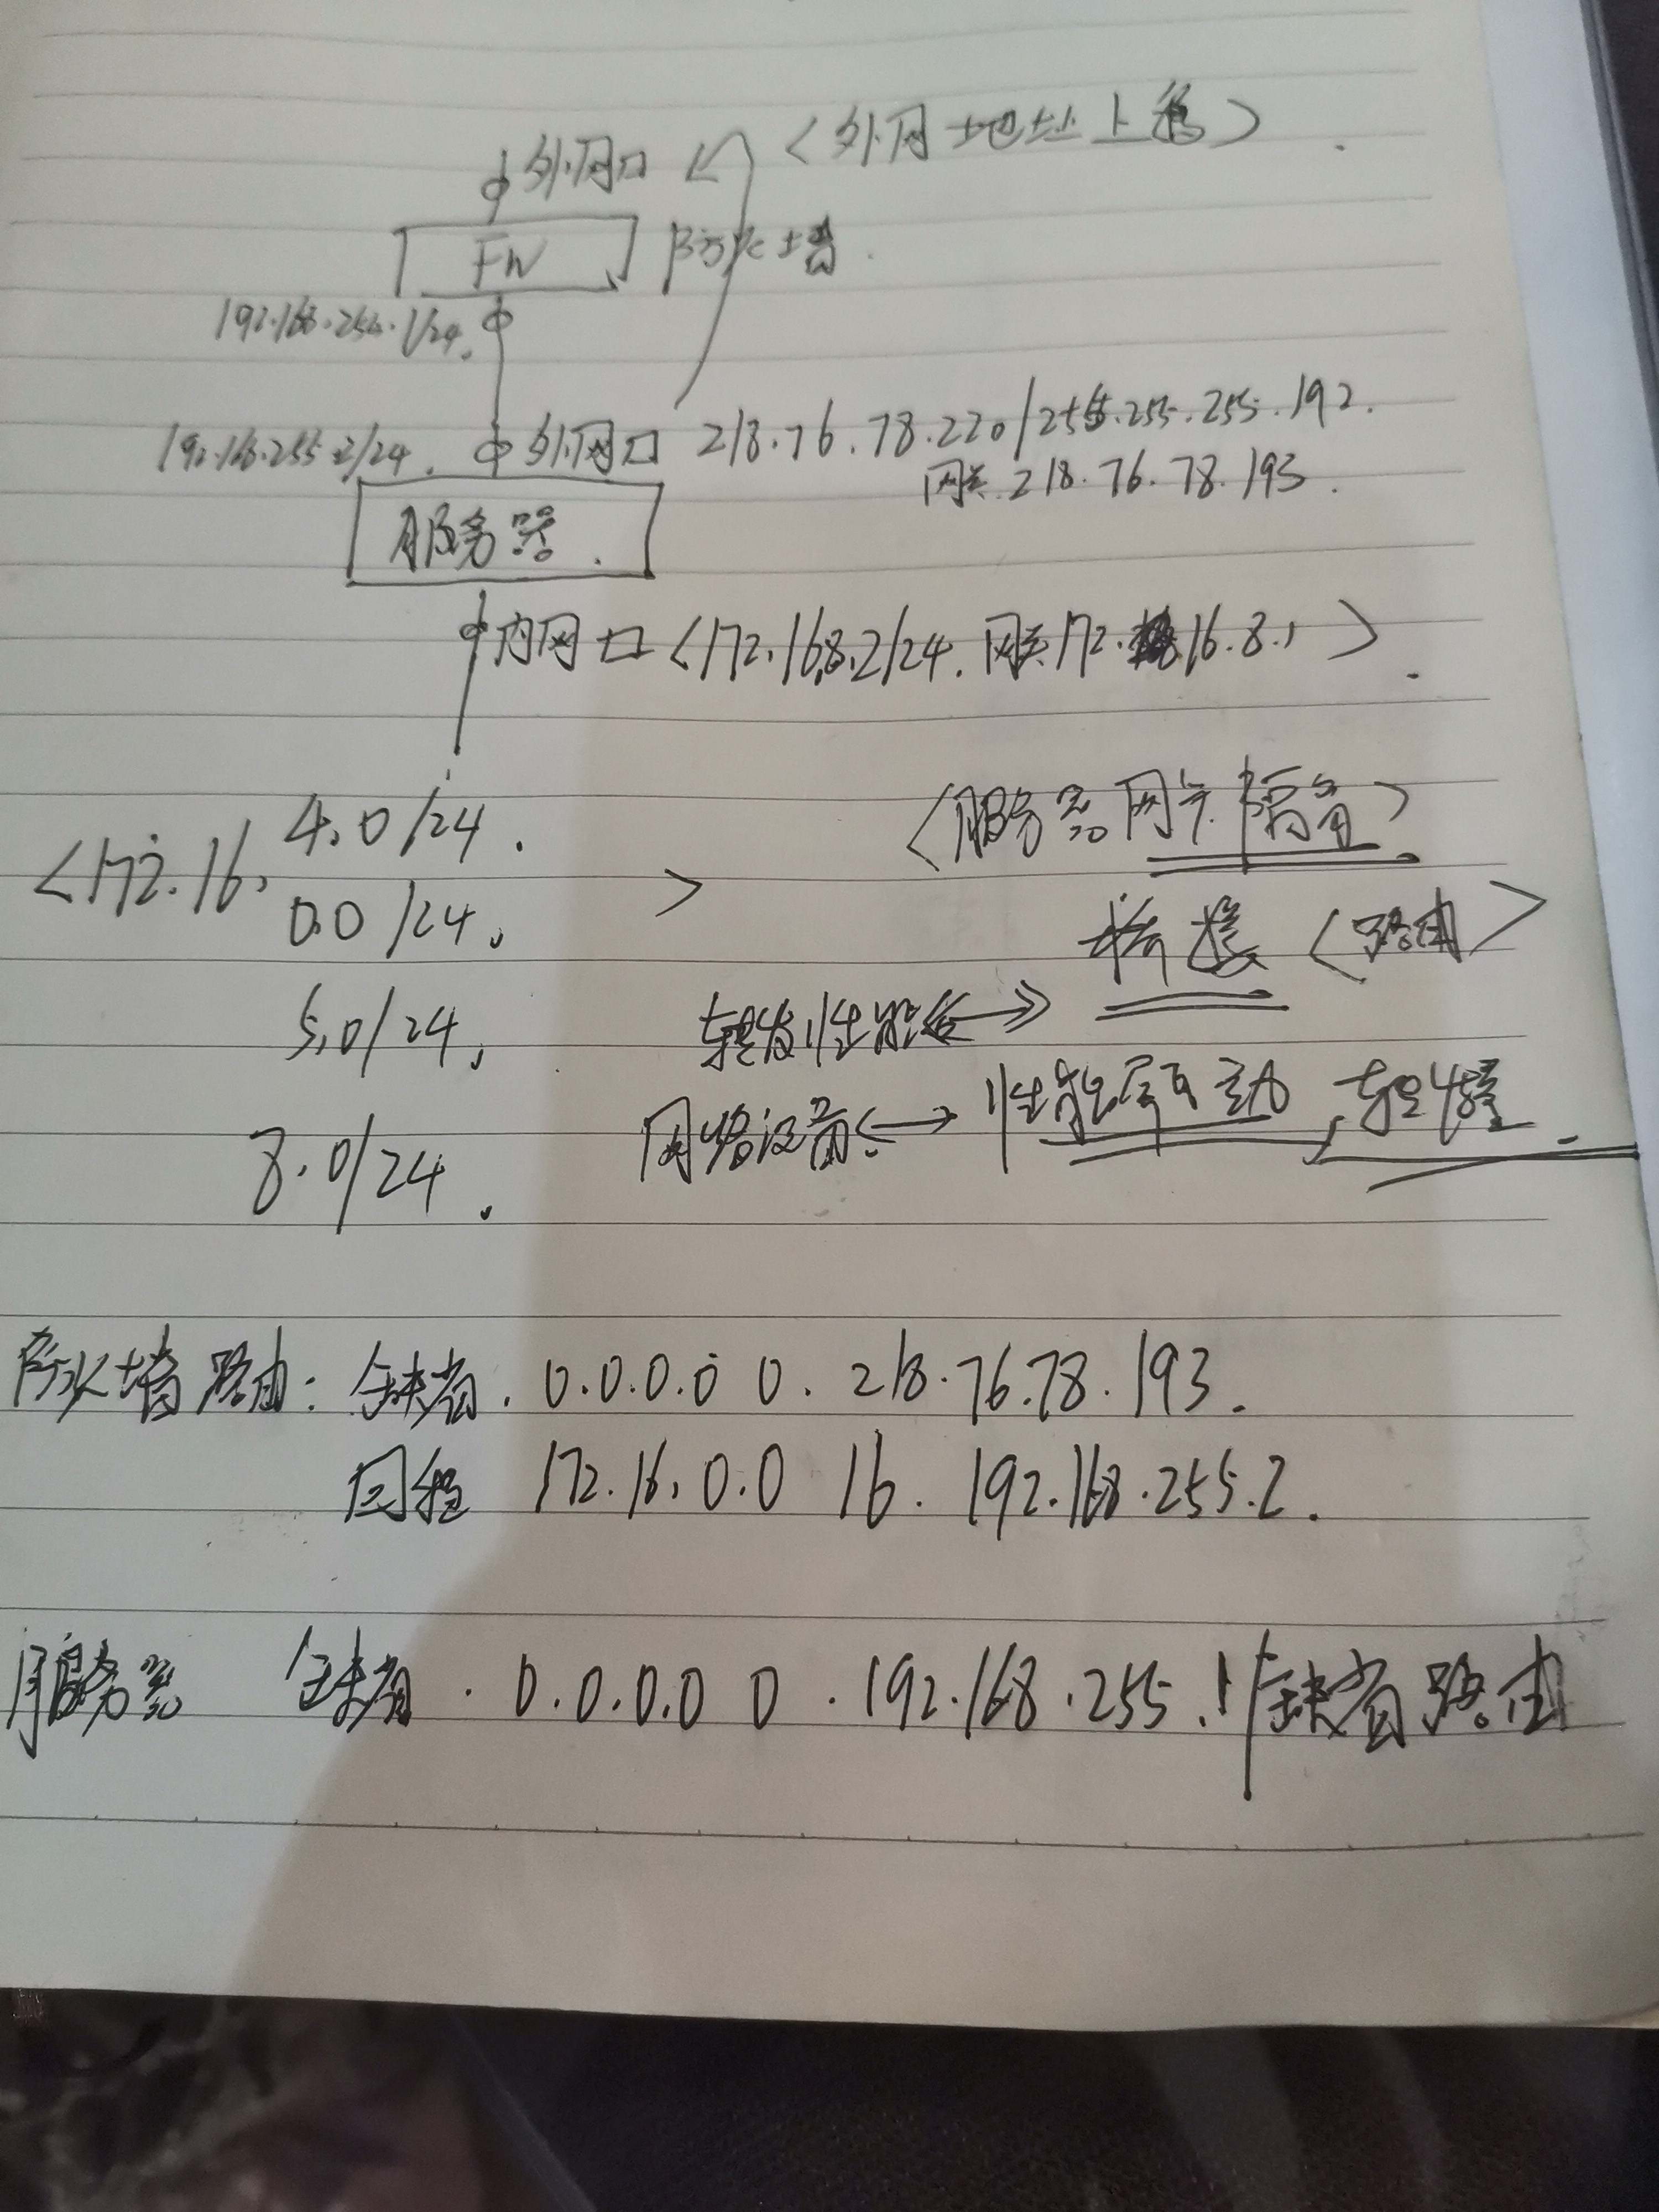 外网口 <外网地址上移>
FW 防火墙.
192.168.255.1/24.
192.168.255.2/24. 外网口 218.76.78.220/255.255.255.192.
网关 218.76.78.193.
服务器.
内网口 <172.16.8.2/24. 网关 172.16.8.1>.
<172.16. 4.0/24.
0.0/24. >
5.0/24.
8.0/24.
<服务器网卡隔离>
桥接 <路由>
转发性能
网络设备 <-> 性能
防火墙路由: 缺省. 0.0.0.0 0. 218.76.78.193.
回程 172.16.0.0 16. 192.168.255.2.
服务器 缺省. 0.0.0.0 0. 192.168.255.1 缺省路由